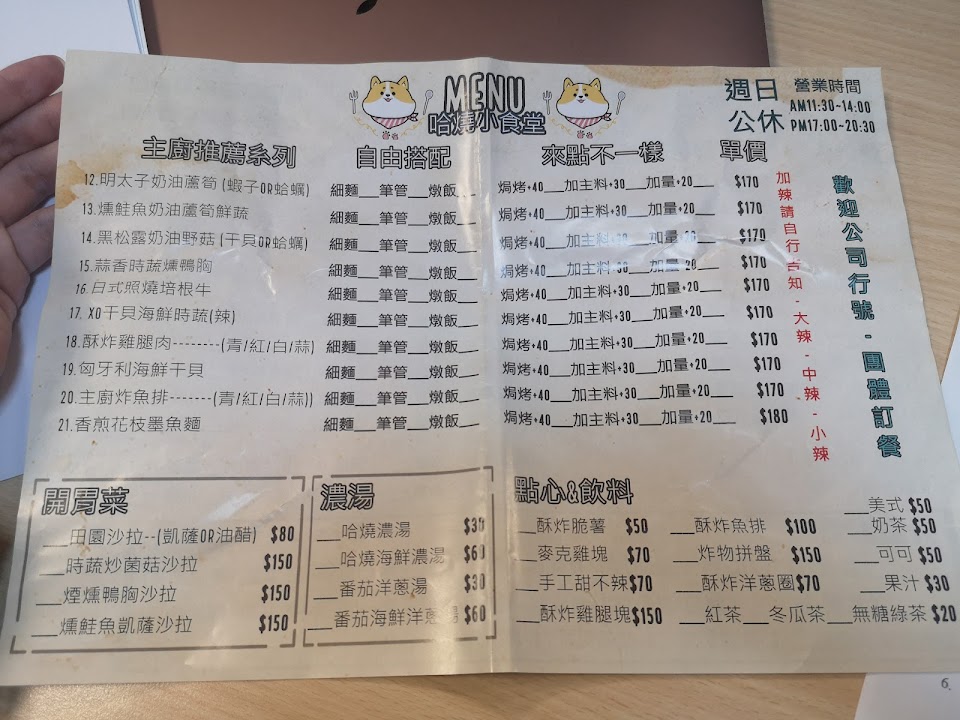 MENU
哈燒小食堂
週日
公休
營業時間
AM11:30-14:00
PM17:00-20:30
主廚推薦系列 自由搭配 來點不一樣 單價
12.明太子奶油蘆筍(蝦子OR蛤蠣) 細麵__筆管__燉飯__ 焗烤+40__加主料+30__加量+20__ $170
13.燻鮭魚奶油蘆筍鮮蔬 細麵__筆管__燉飯__ 焗烤+40__加主料+30__加量+20__ $170
14.黑松露奶油野菇(干貝OR蛤蠣) 細麵__筆管__燉飯__ 焗烤+40__加主料+30__加量+20__ $170
15.蒜香時蔬燻鴨胸 細麵__筆管__燉飯__ 焗烤+40__加主料+30__加量+20__ $170
16.日式照燒培根牛 細麵__筆管__燉飯__ 焗烤+40__加主料+30__加量+20__ $170
17.XO干貝海鮮時蔬(辣) 細麵__筆管__燉飯__ 焗烤+40__加主料+30__加量+20__ $170
18.酥炸雞腿肉--------(青/紅/白/蒜) 細麵__筆管__燉飯__ 焗烤+40__加主料+30__加量+20__ $170
19.匈牙利海鮮干貝 細麵__筆管__燉飯__ 焗烤+40__加主料+30__加量+20__ $170
20.主廚炸魚排-------(青/紅/白/蒜)) 細麵__筆管__燉飯__ 焗烤+40__加主料+30__加量+20__ $170
21.香煎花枝墨魚麵 細麵__筆管__燉飯__ 焗烤+40__加主料+30__加量+20__ $180
加辣請自行告知-大辣-中辣-小辣
歡迎公司行號-團體訂餐
開胃菜
__田園沙拉--(凱薩OR油醋) $80
__時蔬炒菌菇沙拉 $150
__煙燻鴨胸沙拉 $150
__燻鮭魚凱薩沙拉 $150
濃湯
__哈燒濃湯 $30
__哈燒海鮮濃湯 $60
__番茄洋蔥湯 $30
__番茄海鮮洋蔥湯 $60
點心&飲料
__美式 $50
__酥炸脆薯 $50 __酥炸魚排 $100 __奶茶 $50
__麥克雞塊 $70 __炸物拼盤 $150 __可可 $50
__手工甜不辣 $70 __酥炸洋蔥圈 $70 __果汁 $30
__酥炸雞腿塊 $150 __紅茶__冬瓜茶__無糖綠茶 $20
6